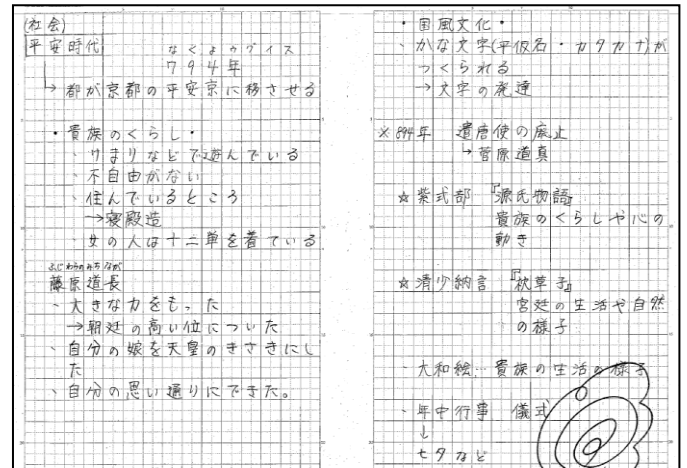 (社会)
平安時代
なくようグイス
794年
→都が京都の平安京に移させる
・貴族のくらし・
、けまりなどで遊んでいる
、不自由がない
、住んでいるところ
→寝殿造
、女の人は十二単を着ている
ふじわらのみちなが
藤原道長
、大きな力をもった
→朝廷の高い位についた
、自分の娘を天皇のきさきにし
た
、自分の思い通りにできた。
・国風文化・
、かな文字(平仮名・カタカナ)が
つくられる
→文字の発達
※894年 遣唐使の廃止
↳菅原道真
☆紫式部『源氏物語』
貴族のくらしや心の
動き
☆清少納言『枕草子』
宮廷の生活や自然
の様子
、大和絵…貴族の生活の様子
、年中行事 儀式
↓
七夕など